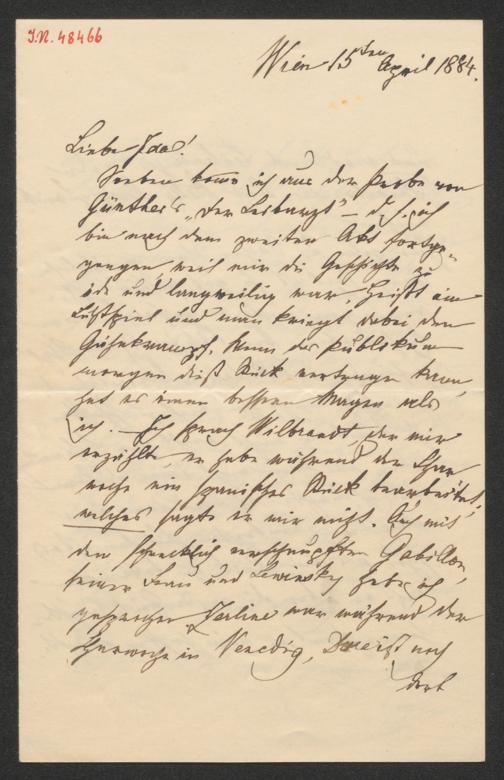 I.N. 48466
Wien 15ten April 1884.
Liebe Ida!
Soeben komme ich aus der Probe von
Günther's „Der Leibarzt" – d. h. ich
bin nach dem zweiten Akt fortge-
gangen, weil mir die Geschichte zu
öde und langweilig war, heißt ein
Lustspiel und man kriegt dabei den
Gähnkrampf. Wenn das Publikum
morgen dieß Stück vertragen kann,
hat es einen besseren Magen als
ich. – Ich sprach Wilbrandt, der mir
erzählte, er habe während der Char
woche ein spanisches Stück bearbeitet,
welches sagte er mir nicht. Auch mit
dem schrecklich verschnupften Gabillon,
seiner Frau und Lewinsky habe ich
gesprochen. war während der
Charwoche in Venedig, ist noch
dort